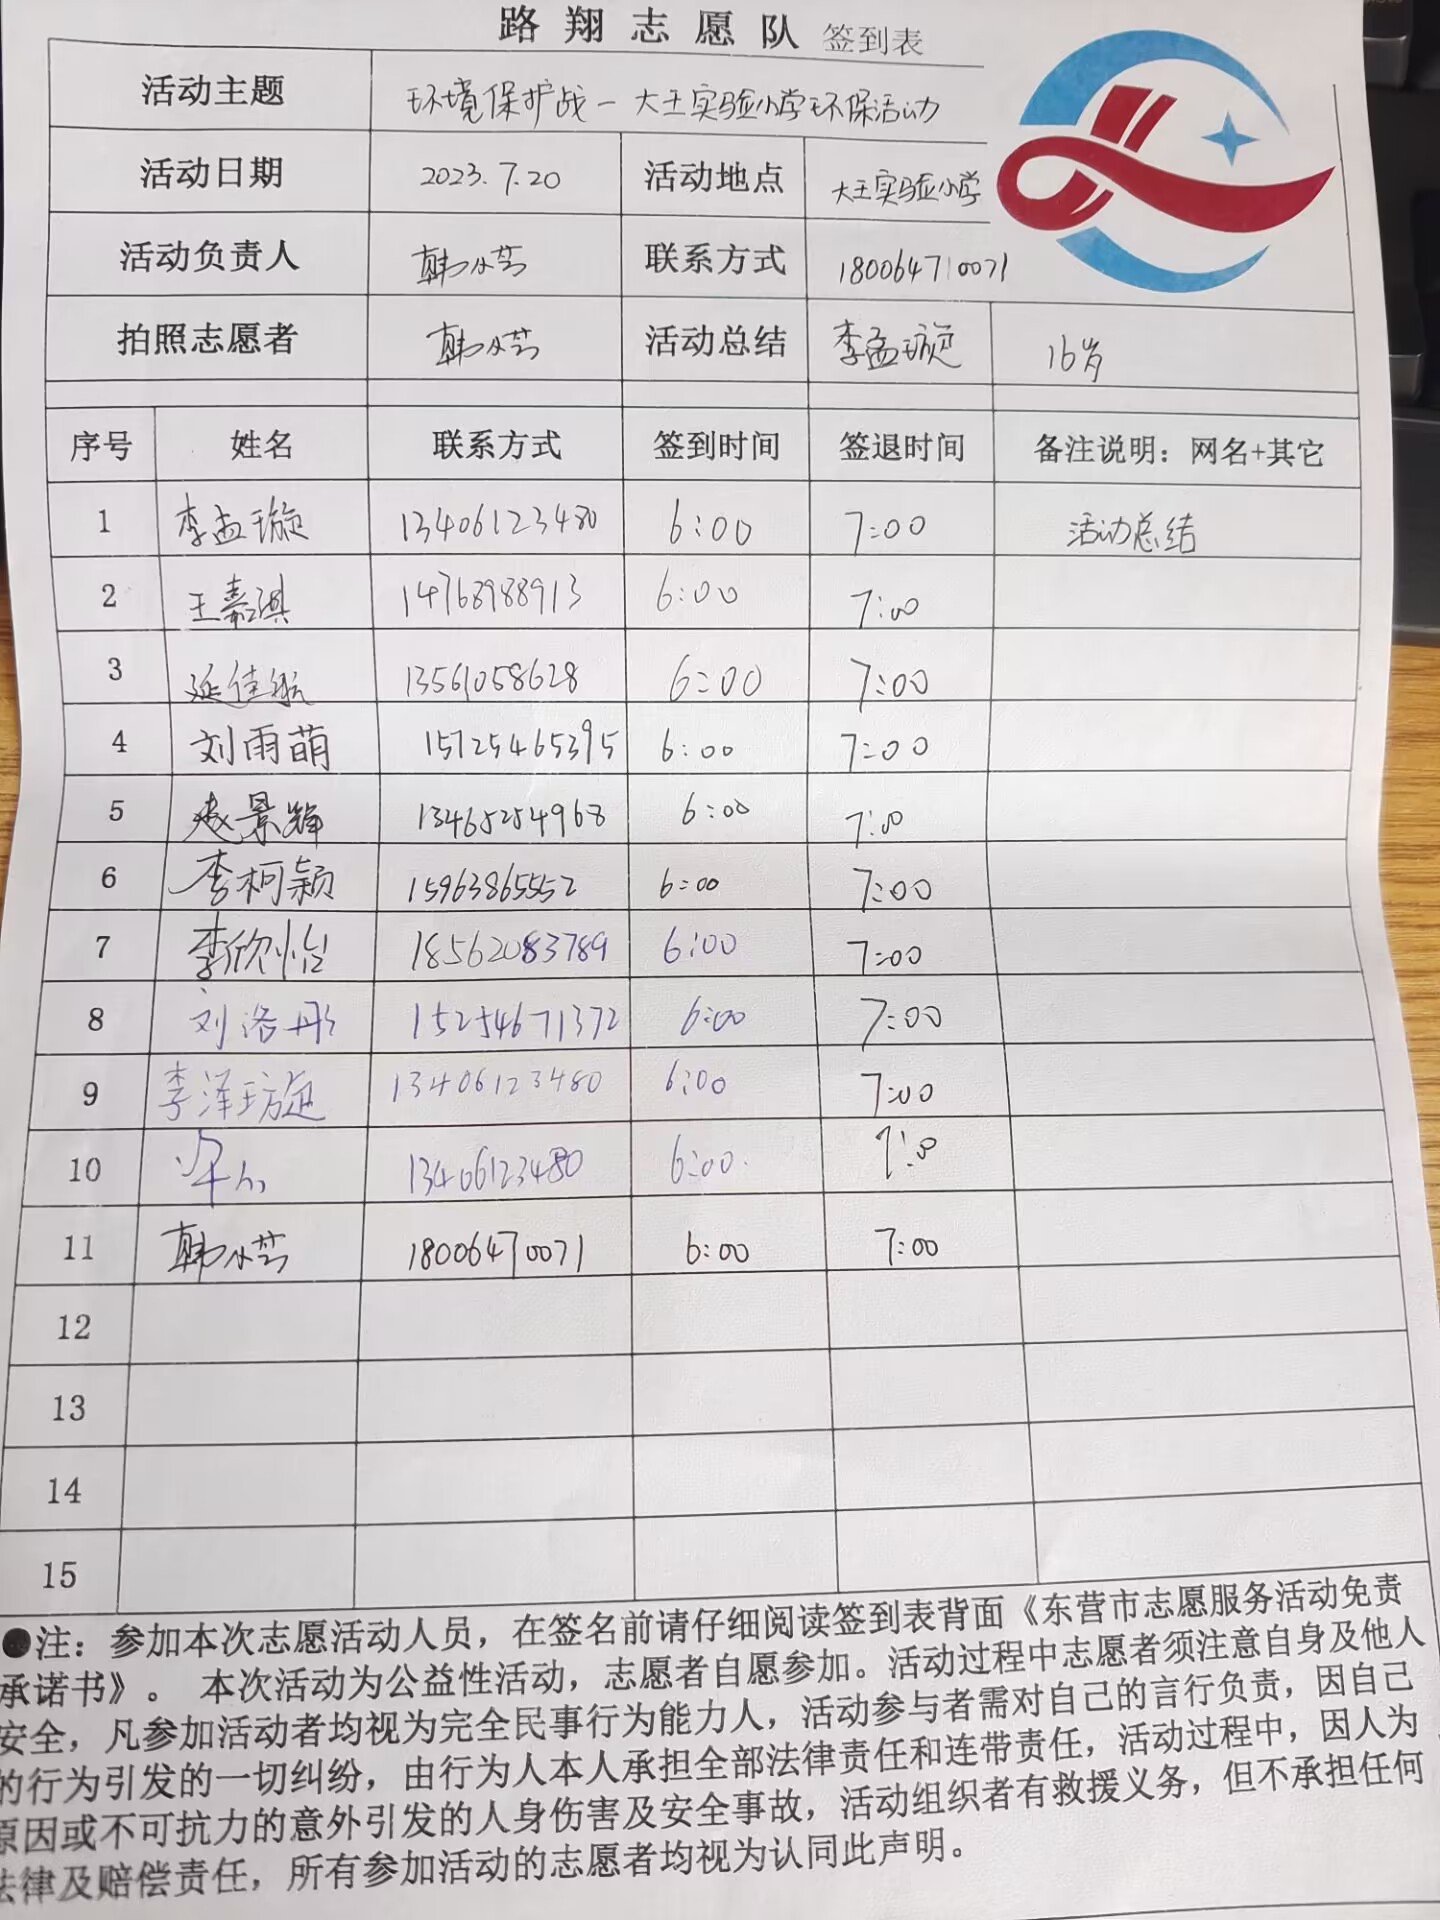 路翔志愿队 签到表
活动主题 环境保护战－大王实验小学环保活动
活动日期 2023.7.20 活动地点 大王实验小学
活动负责人 联系方式 18006471 0071
拍照志愿者 活动总结 李孟璇 16岁
序号 姓名 联系方式 签到时间 签退时间 备注说明：网名+其它
1 李孟璇 13406123480 6:00 7:00 活动总结
2 王嘉琪 14768988913 6:00 7:00
3 延佳航 13561058628 6:00 7:00
4 刘雨萌 15725465395 6:00 7:00
5 赵景辉 13465254968 6:00 7:00
6 李柯颖 15963865552 6:00 7:00
7 李欣怡 18562083789 6:00 7:00
8 刘洛彤 15254671372 6:00 7:00
9 李泽璇 13406123480 6:00 7:00
10 13406123480 6:00 7:00
11 18006470071 6:00 7:00
12
13
14
15
●注：参加本次志愿活动人员，在签名前请仔细阅读签到表背面《东营市志愿服务活动免责
承诺书》。 本次活动为公益性活动，志愿者自愿参加。活动过程中志愿者须注意自身及他人
安全，凡参加活动者均视为完全民事行为能力人，活动参与者需对自己的言行负责，因自己
的行为引发的一切纠纷，由行为人本人承担全部法律责任和连带责任，活动过程中，因人为
原因或不可抗力的意外引发的人身伤害及安全事故，活动组织者有救援义务，但不承担任何
法律及赔偿责任，所有参加活动的志愿者均视为认同此声明。